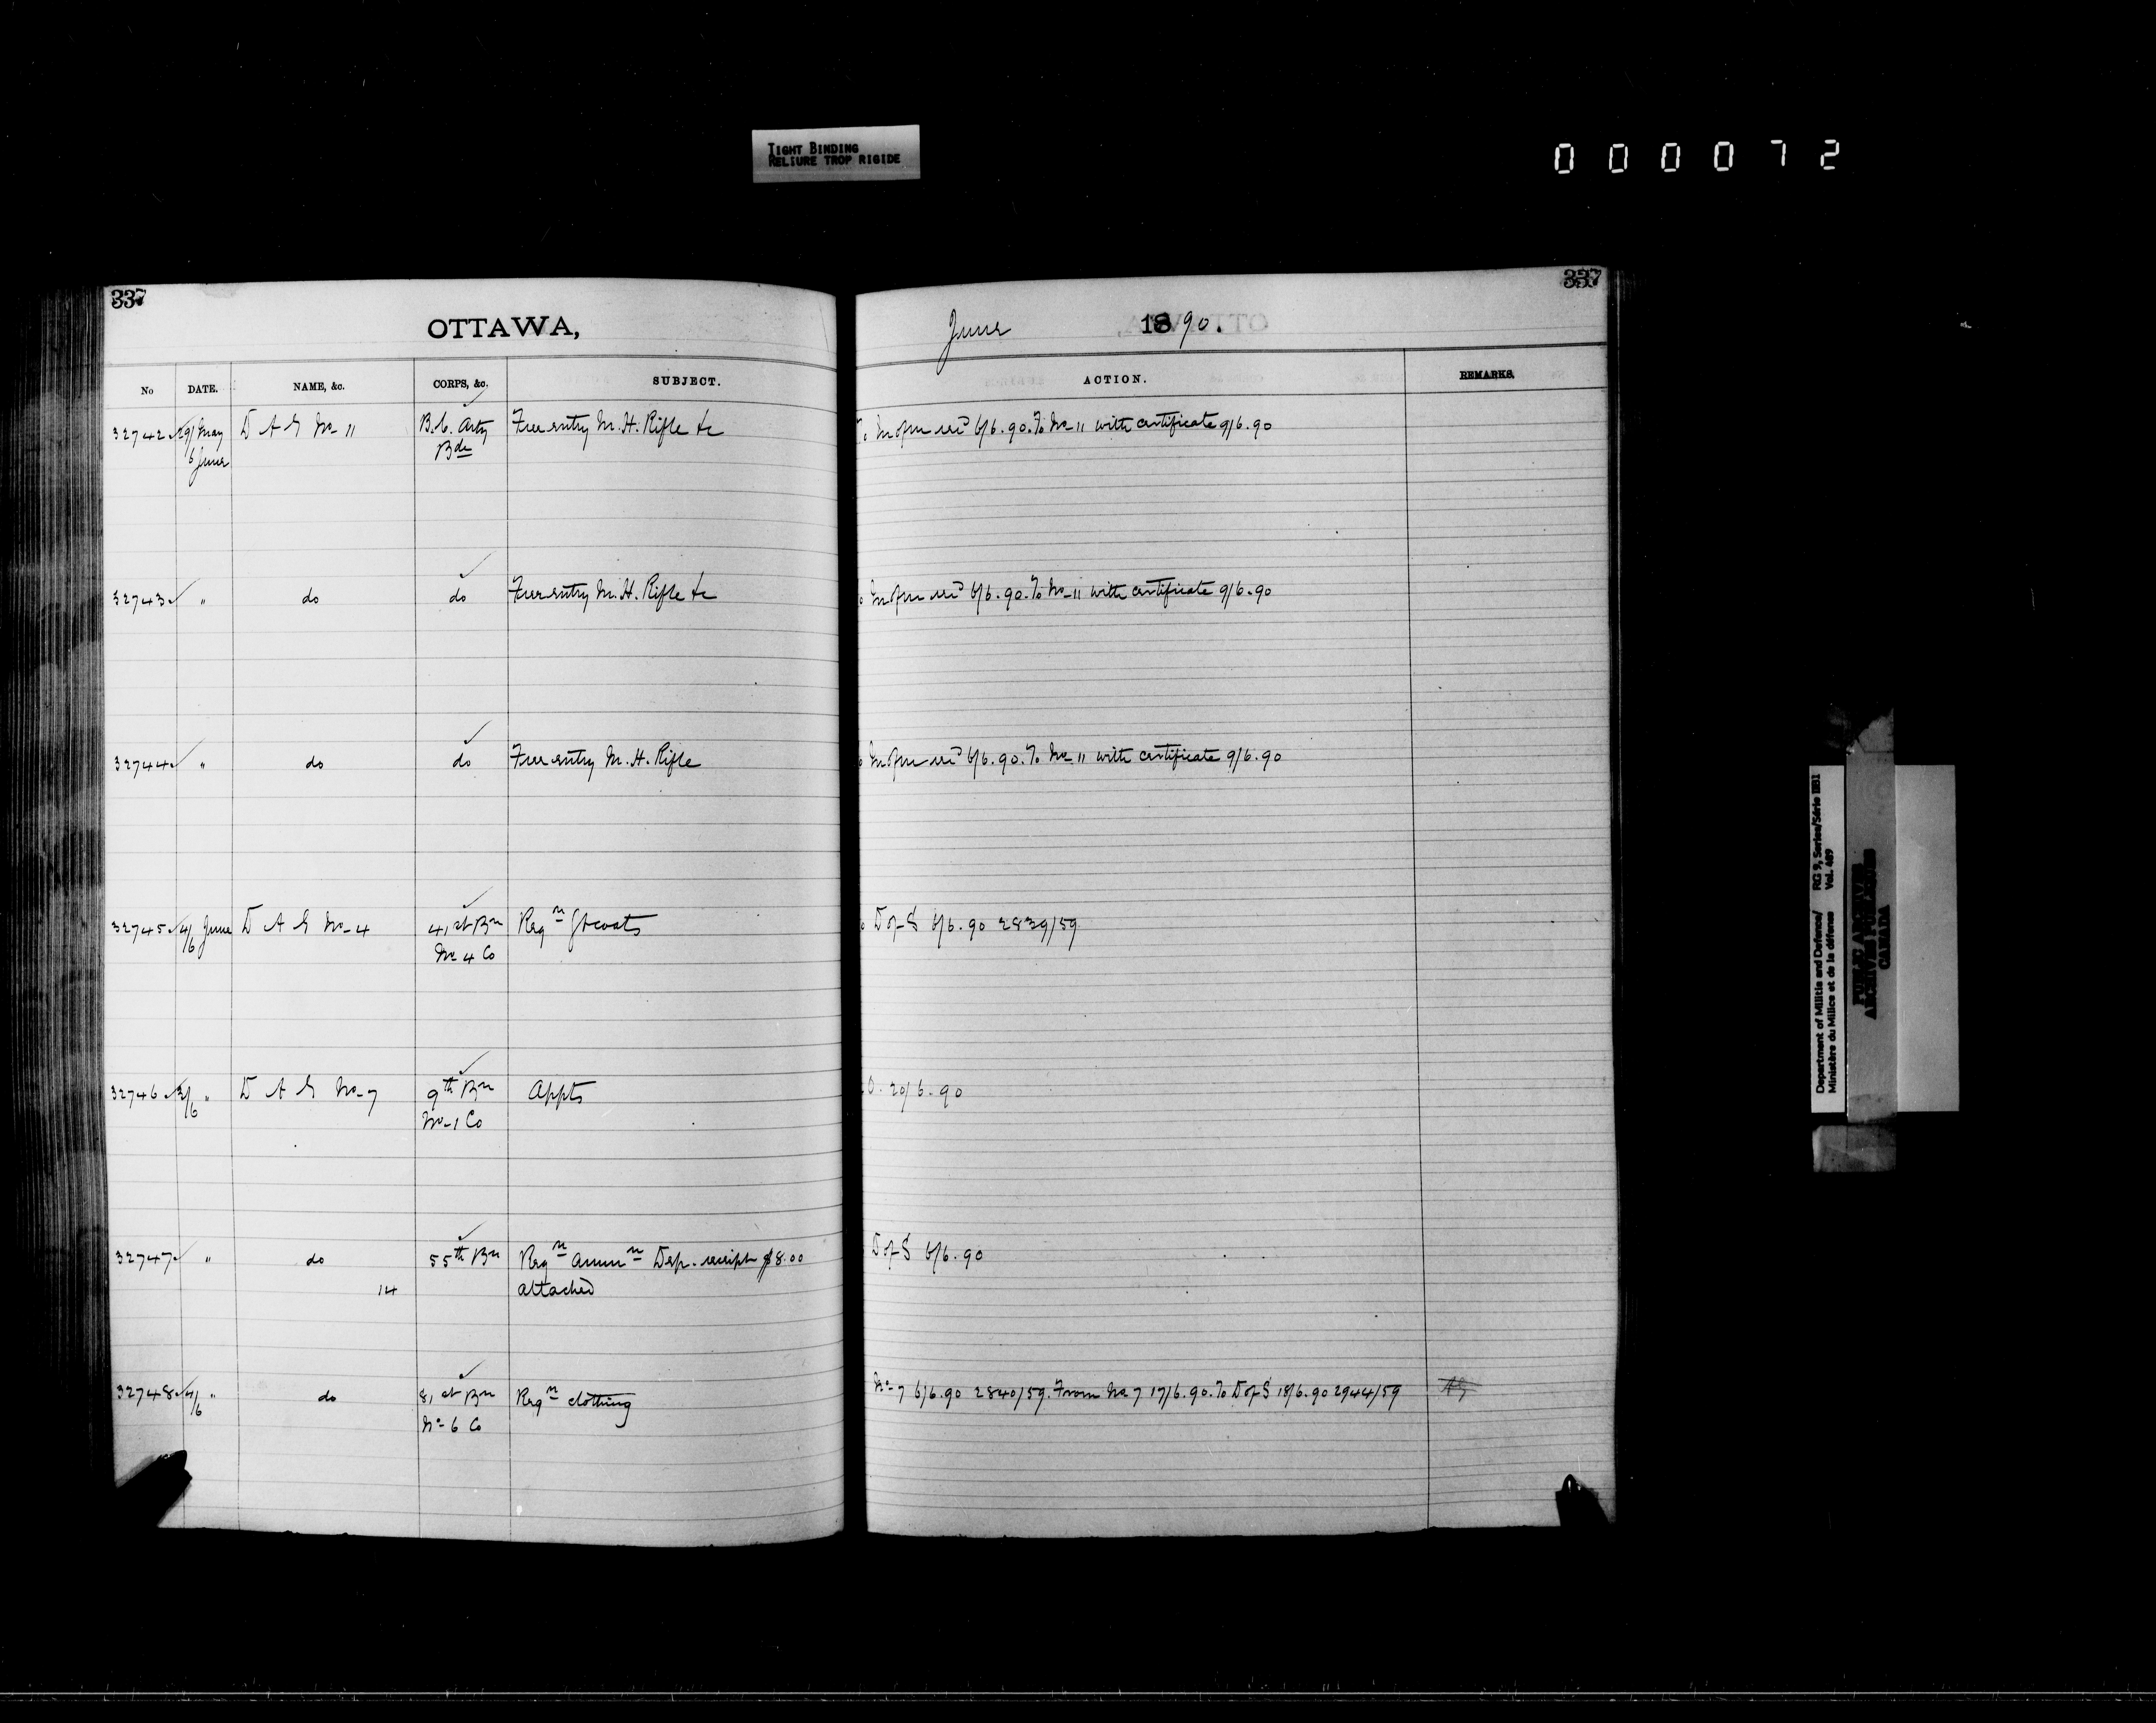 TIGHT BINDING
RELIURE TROP RIGIDE
000072
337
337
OTTAWA,
June 1890.
No DATE. NAME, &c. CORPS, &c. SUBJECT. ACTION. REMARKS.
32742 29/ May D A G No 11 B.C. Arty Free entry M.H. Rifle &c To M of M rec'd 6/6.90. To No 11 with certificate 9/6.90
6 June Bde
32743 " do do Free entry M.H. Rifle &c M of M rec'd 6/6.90. To No 11 with certificate 9/6.90
32744 " do do Free entry M.H. Rifle M of M rec'd 6/6.90. To No 11 with certificate 9/6.90
32745 4/6 June D A G No 4 41st Bn Reqn Gtcoats D of S 6/6.90 2839/59
No 4 Co
32746 3/6 " D A G No 7 9th Bn Appts O. 20/6.90
No 1 Co
32747 " do 55th Bn Reqn Ammn Dep. receipt $8.00 D of S 6/6.90
14 attached
32748 4/6 " do 81st Bn Reqn clothing No 7 6/6.90 2840/59. From No 7 17/6.90. To D of S 18/6.90 2944/59
No 6 Co
Department of Militia and Defence/ RG 9, Series/Série IIB1
Ministère du Milice et de la défence Vol. 489
PUBLIC ARCHIVES
ARCHIVES PUBLIQUES
CANADA